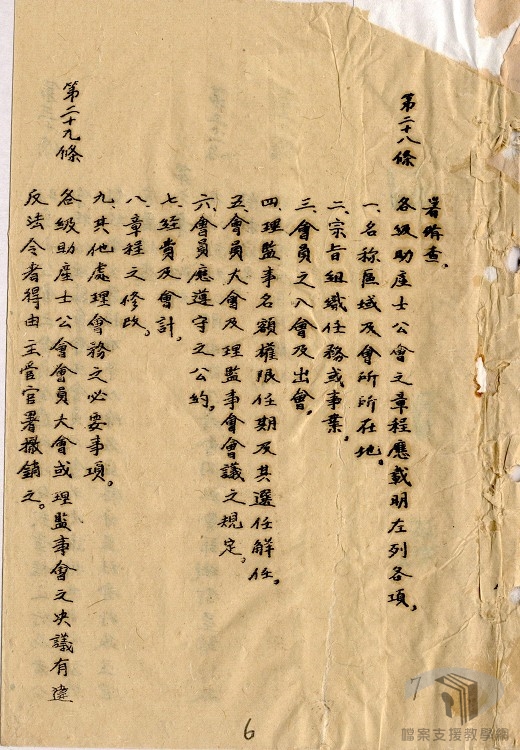 署存查。
第二十八條 各級助產士公會之章程應載明左列各項。
一、名称區域及會所所在地。
二、宗旨組織任務或事業。
三、會員之入會及出會。
四、理監事名額權限任期及其選任解任。
五、會員大會及理監事會會議之規定。
六、會員應遵守之公約。
七、經費及會計。
八、章程之修改。
九、其他處理會務之必要事項。
第二十九條 各級助產士公會會員大會或理監事會之决議有違
反法令者得由主管官署撤銷之。
6
檔案支援教學網